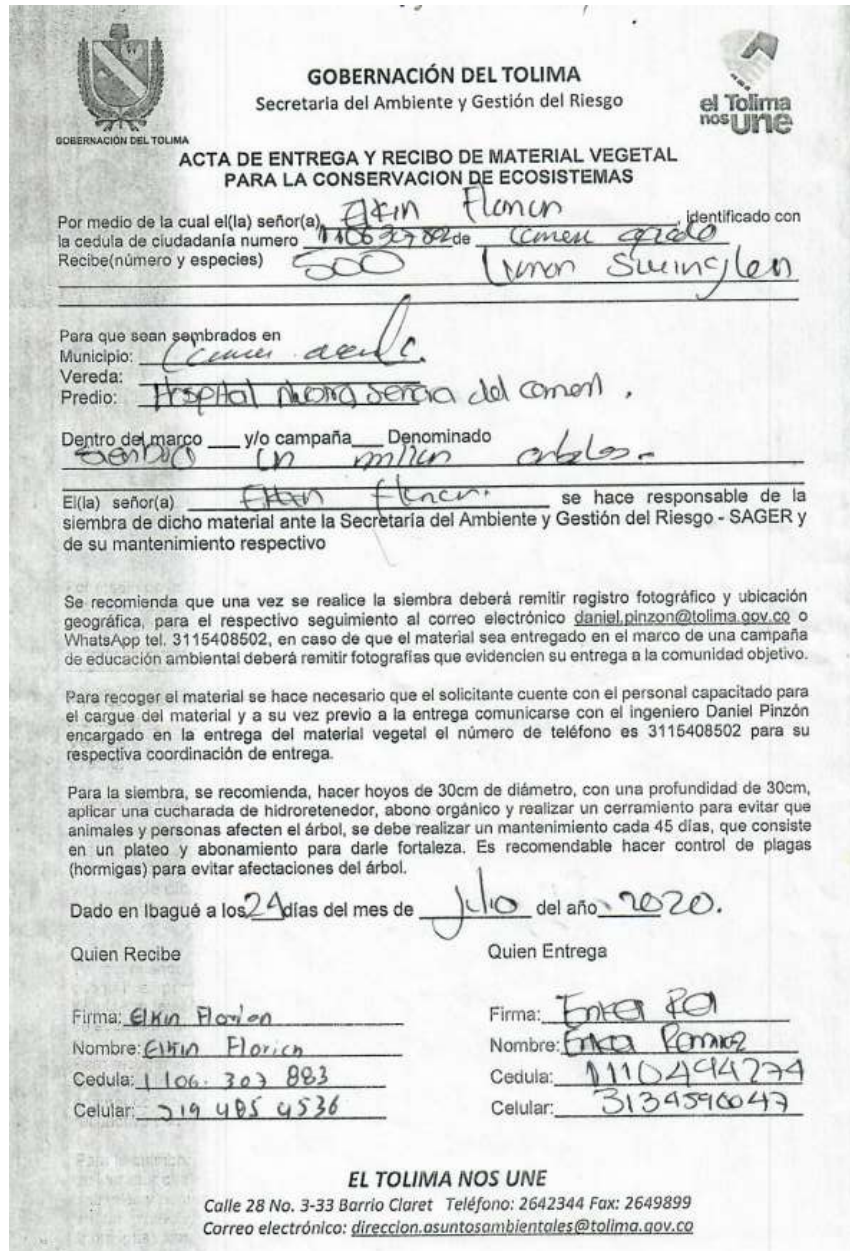 GOBERNACIÓN DEL TOLIMA
Secretaria del Ambiente y Gestión del Riesgo
el Tolima
nos une
GOBERNACIÓN DEL TOLIMA
ACTA DE ENTREGA Y RECIBO DE MATERIAL VEGETAL
PARA LA CONSERVACION DE ECOSISTEMAS
Por medio de la cual el(la) señor(a) Elkin Florian, identificado con
la cedula de ciudadanía numero de Carmen
Recibe(número y especies) 500 Limon Swinglen
Para que sean sembrados en
Municipio: Carmen
Vereda:
Predio: Hospital Nuestra Señora del Carmen.
Dentro del marco ___ y/o campaña ___ Denominado
un arboles.
El(la) señor(a) Elkin Florian. se hace responsable de la
siembra de dicho material ante la Secretaría del Ambiente y Gestión del Riesgo - SAGER y
de su mantenimiento respectivo
Se recomienda que una vez se realice la siembra deberá remitir registro fotográfico y ubicación
geográfica, para el respectivo seguimiento al correo electrónico daniel.pinzon@tolima.gov.co o
WhatsApp tel. 3115408502, en caso de que el material sea entregado en el marco de una campaña
de educación ambiental deberá remitir fotografías que evidencien su entrega a la comunidad objetivo.
Para recoger el material se hace necesario que el solicitante cuente con el personal capacitado para
el cargue del material y a su vez previo a la entrega comunicarse con el ingeniero Daniel Pinzón
encargado en la entrega del material vegetal el número de teléfono es 3115408502 para su
respectiva coordinación de entrega.
Para la siembra, se recomienda, hacer hoyos de 30cm de diámetro, con una profundidad de 30cm,
aplicar una cucharada de hidroretenedor, abono orgánico y realizar un cerramiento para evitar que
animales y personas afecten el árbol, se debe realizar un mantenimiento cada 45 días, que consiste
en un plateo y abonamiento para darle fortaleza. Es recomendable hacer control de plagas
(hormigas) para evitar afectaciones del árbol.
Dado en Ibagué a los 24 días del mes de Julio del año 2020.
Quien Recibe Quien Entrega
Firma: Elkin Florian Firma:
Nombre: Elkin Florian Nombre: Erika Ramirez
Cedula: 1106.307 883 Cedula: 1110494274
Celular: 319 485 4536 Celular: 3134596047
EL TOLIMA NOS UNE
Calle 28 No. 3-33 Barrio Claret Teléfono: 2642344 Fax: 2649899
Correo electrónico: direccion.asuntosambientales@tolima.gov.co